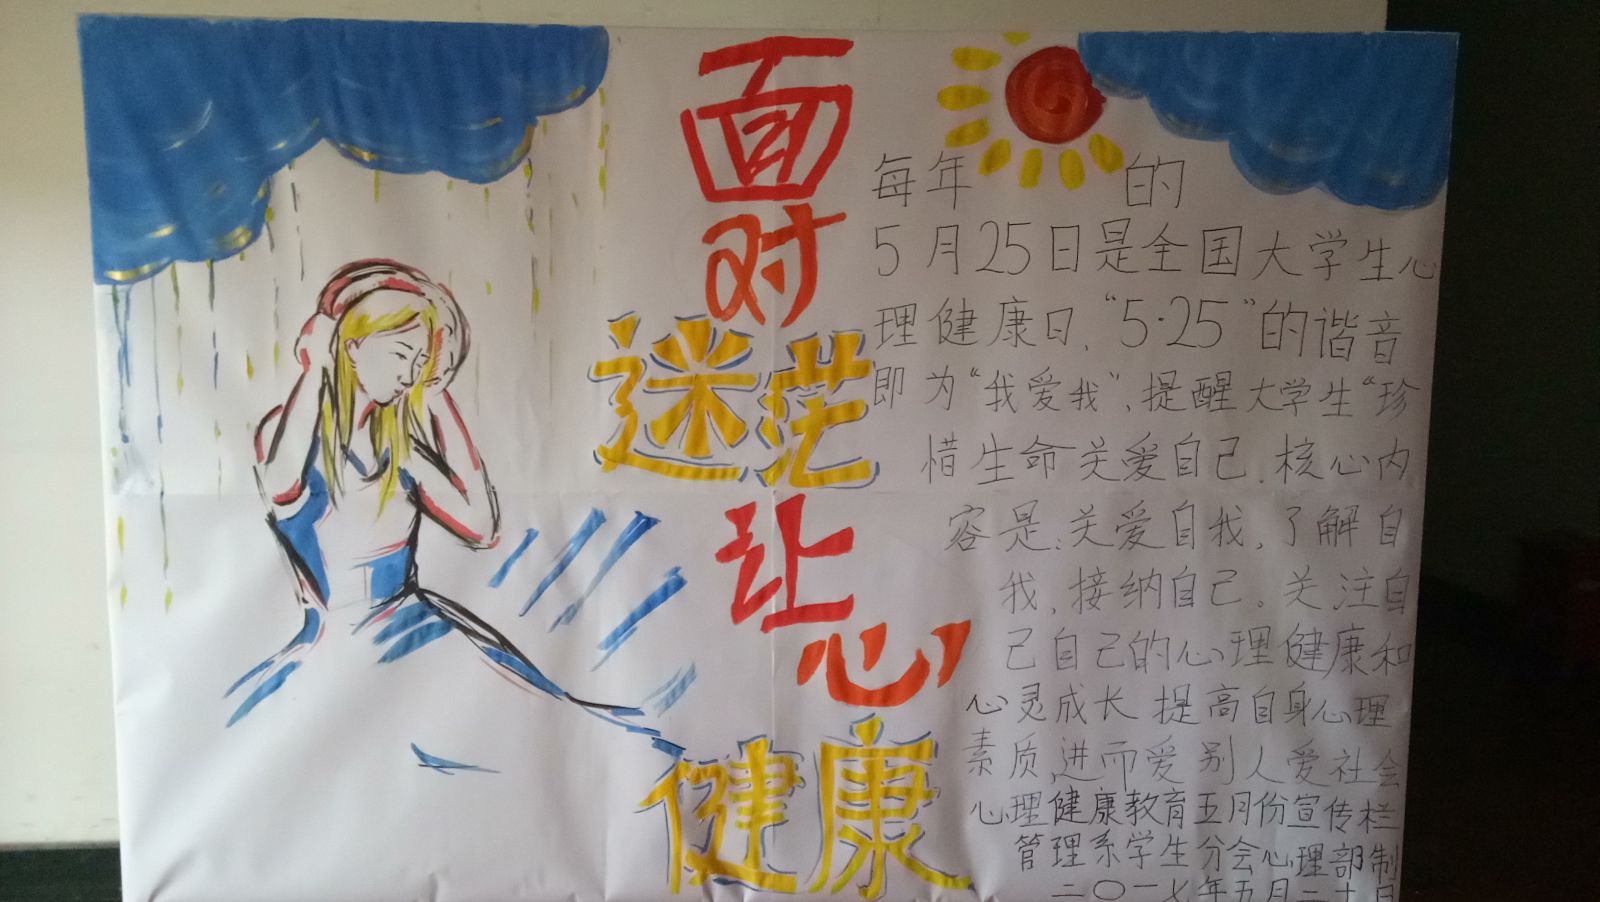 面对
迷茫
让
心
健康
每年 的
5月25日是全国大学生心
理健康日，“5·25”的谐音
即为“我爱我”，提醒大学生“珍
惜生命关爱自己.核心内
容是：关爱自我，了解自
我，接纳自己。关注自
己自己的心理健康和
心灵成长 提高自身心理
素质,进而爱别人爱社会
心理健康教育五月份宣传栏
管理系学生分会心理部制
二〇一七年五月二十日